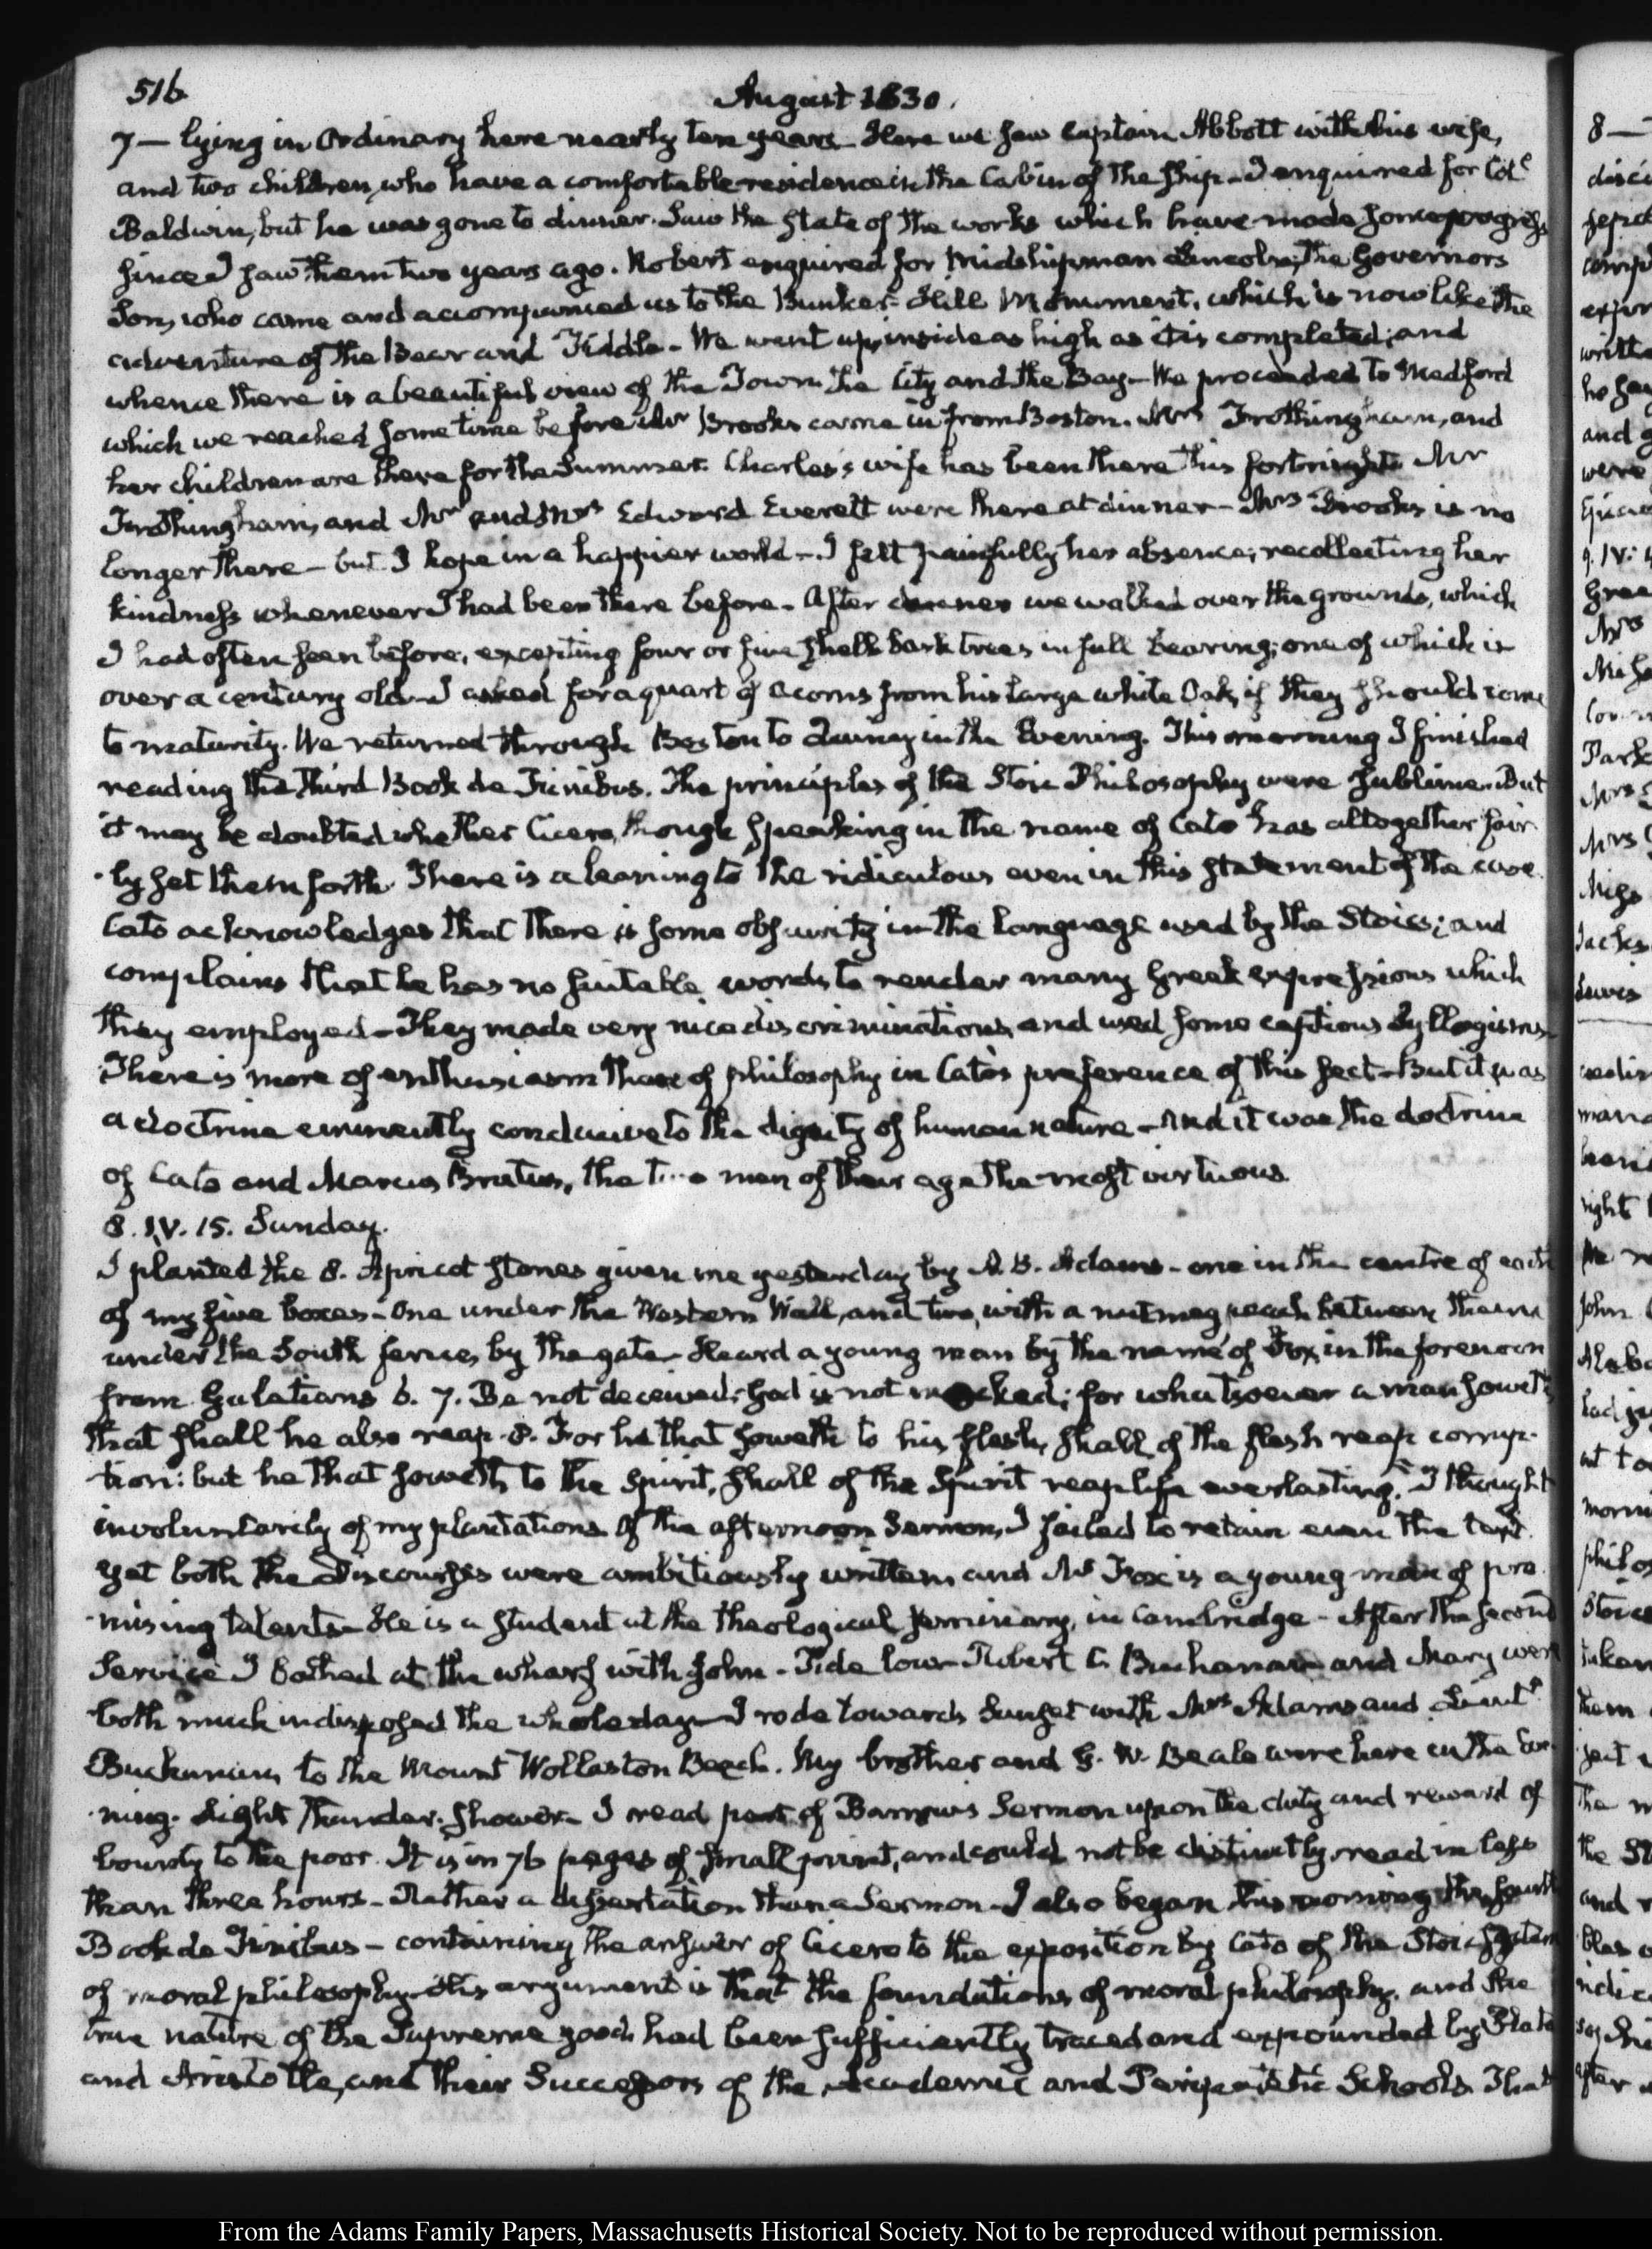 516
August 1830.
7— lying in Ordinary here nearly ten years— Here we saw Captain Abbott with his wife,
and two children, who have a comfortable residence in the Cabin of the Ship— I enquired for Col.
Baldwin, but he was gone to dinner. Saw the state of the works which have made some progress
since I saw them two years ago. Robert enquired for Midshipman Lincoln, the Governors
Son, who came and accompanied us to the Bunker-Hill Monument, which is now like the
adventure of the Bear and Fiddle— We went up, inside as high as it is completed; and
whence there is a beautiful view of the Town the City and the Bay— We proceeded to Medford
which we reached some time before Mr Brooks came in from Boston. Mrs Frothingham, and
her children are there for the Summer. Charles's wife has been there this fortnight Mr
Frothingham, and Mr and Mrs Edward Everett were there at dinner— Mrs Brooks is no
longer there— but I hope in a happier world— I felt painfully her absence, recollecting her
kindness whenever I had been there before— After dinner we walked over the grounds, which
I had often seen before, excepting four or five shell bark trees in full bearing; one of which is
over a century old— I asked for a quart of acorns from his large white Oak, if they should come
to maturity. We returned through Boston to Quincy in the Evening. This morning I finished
reading the Third Book de Finibus. The principles of the Stoic Philosophy were sublime. But
it may be doubted whether Cicero, though speaking in the name of Cato has altogether fair-
-ly set them forth. There is a leaning to the ridiculous even in this statement of the case.
Cato acknowledges that there is some obscurity in the language used by the Stoics; and
complains that he has no suitable words to render many Greek expressions which
they employed— They made very nice discriminations, and used some captious Syllogisms
There is more of enthusiasm than of philosophy in Cato's preference of this sect— But it was
a doctrine eminently conducive to the dignity of human nature— and it was the doctrine
of Cato and Marcus Brutus, the two men of their age the most virtuous.
8. IV. 15. Sunday.
I planted the 8. Apricot stones given me yesterday by A. B. Adams— one in the centre of each
of my five boxes— One under the Western Wall, and two, with a nutmeg peach between them
under the South fence, by the gate— Heard a young man by the name of Fox, in the forenoon
from Galatians 6. 7. Be not deceived; God is not mocked; for whatsoever a man soweth
that shall he also reap. 8. For he that soweth to his flesh, shall of the flesh reap corrup-
-tion: but he that soweth to the Spirit, shall of the Spirit reap life everlasting. I thought
involuntarily of my plantations Of the afternoon Sermon, I failed to retain even the text
yet both the Discourses were ambitiously written, and Mr Fox is a young man of pro-
-mising talents— He is a student at the theological Seminary, in Cambridge— After the second
Service I bathed at the wharf with John— Tide low— Robert C. Buchanan and Mary were
both much indisposed the whole day— I rode towards Sunset with Mrs Adams and Lieut.
Buchanan, to the Mount Wollaston Beach. My brother and G. W. Beale were here in the Eve-
-ning. Light Thunder-shower— I read part of Barrow's Sermon upon the duty and reward of
bounty to the poor. It is in 76 pages of small print, and could not be distinctly read in less
than three hours— Rather a dissertation than a Sermon— I also began this morning the fourth
Book de Finibus— containing the answer of Cicero to the exposition by Cato of the Stoic System
of moral philosophy— His argument is that the foundations of moral philosophy, and the
true nature of the Supreme good, had been sufficiently traced and expounded by Plato
and Aristotle, and their Successors of the Academic and Peripatetic Schools. That
From the Adams Family Papers, Massachusetts Historical Society. Not to be reproduced without permission.